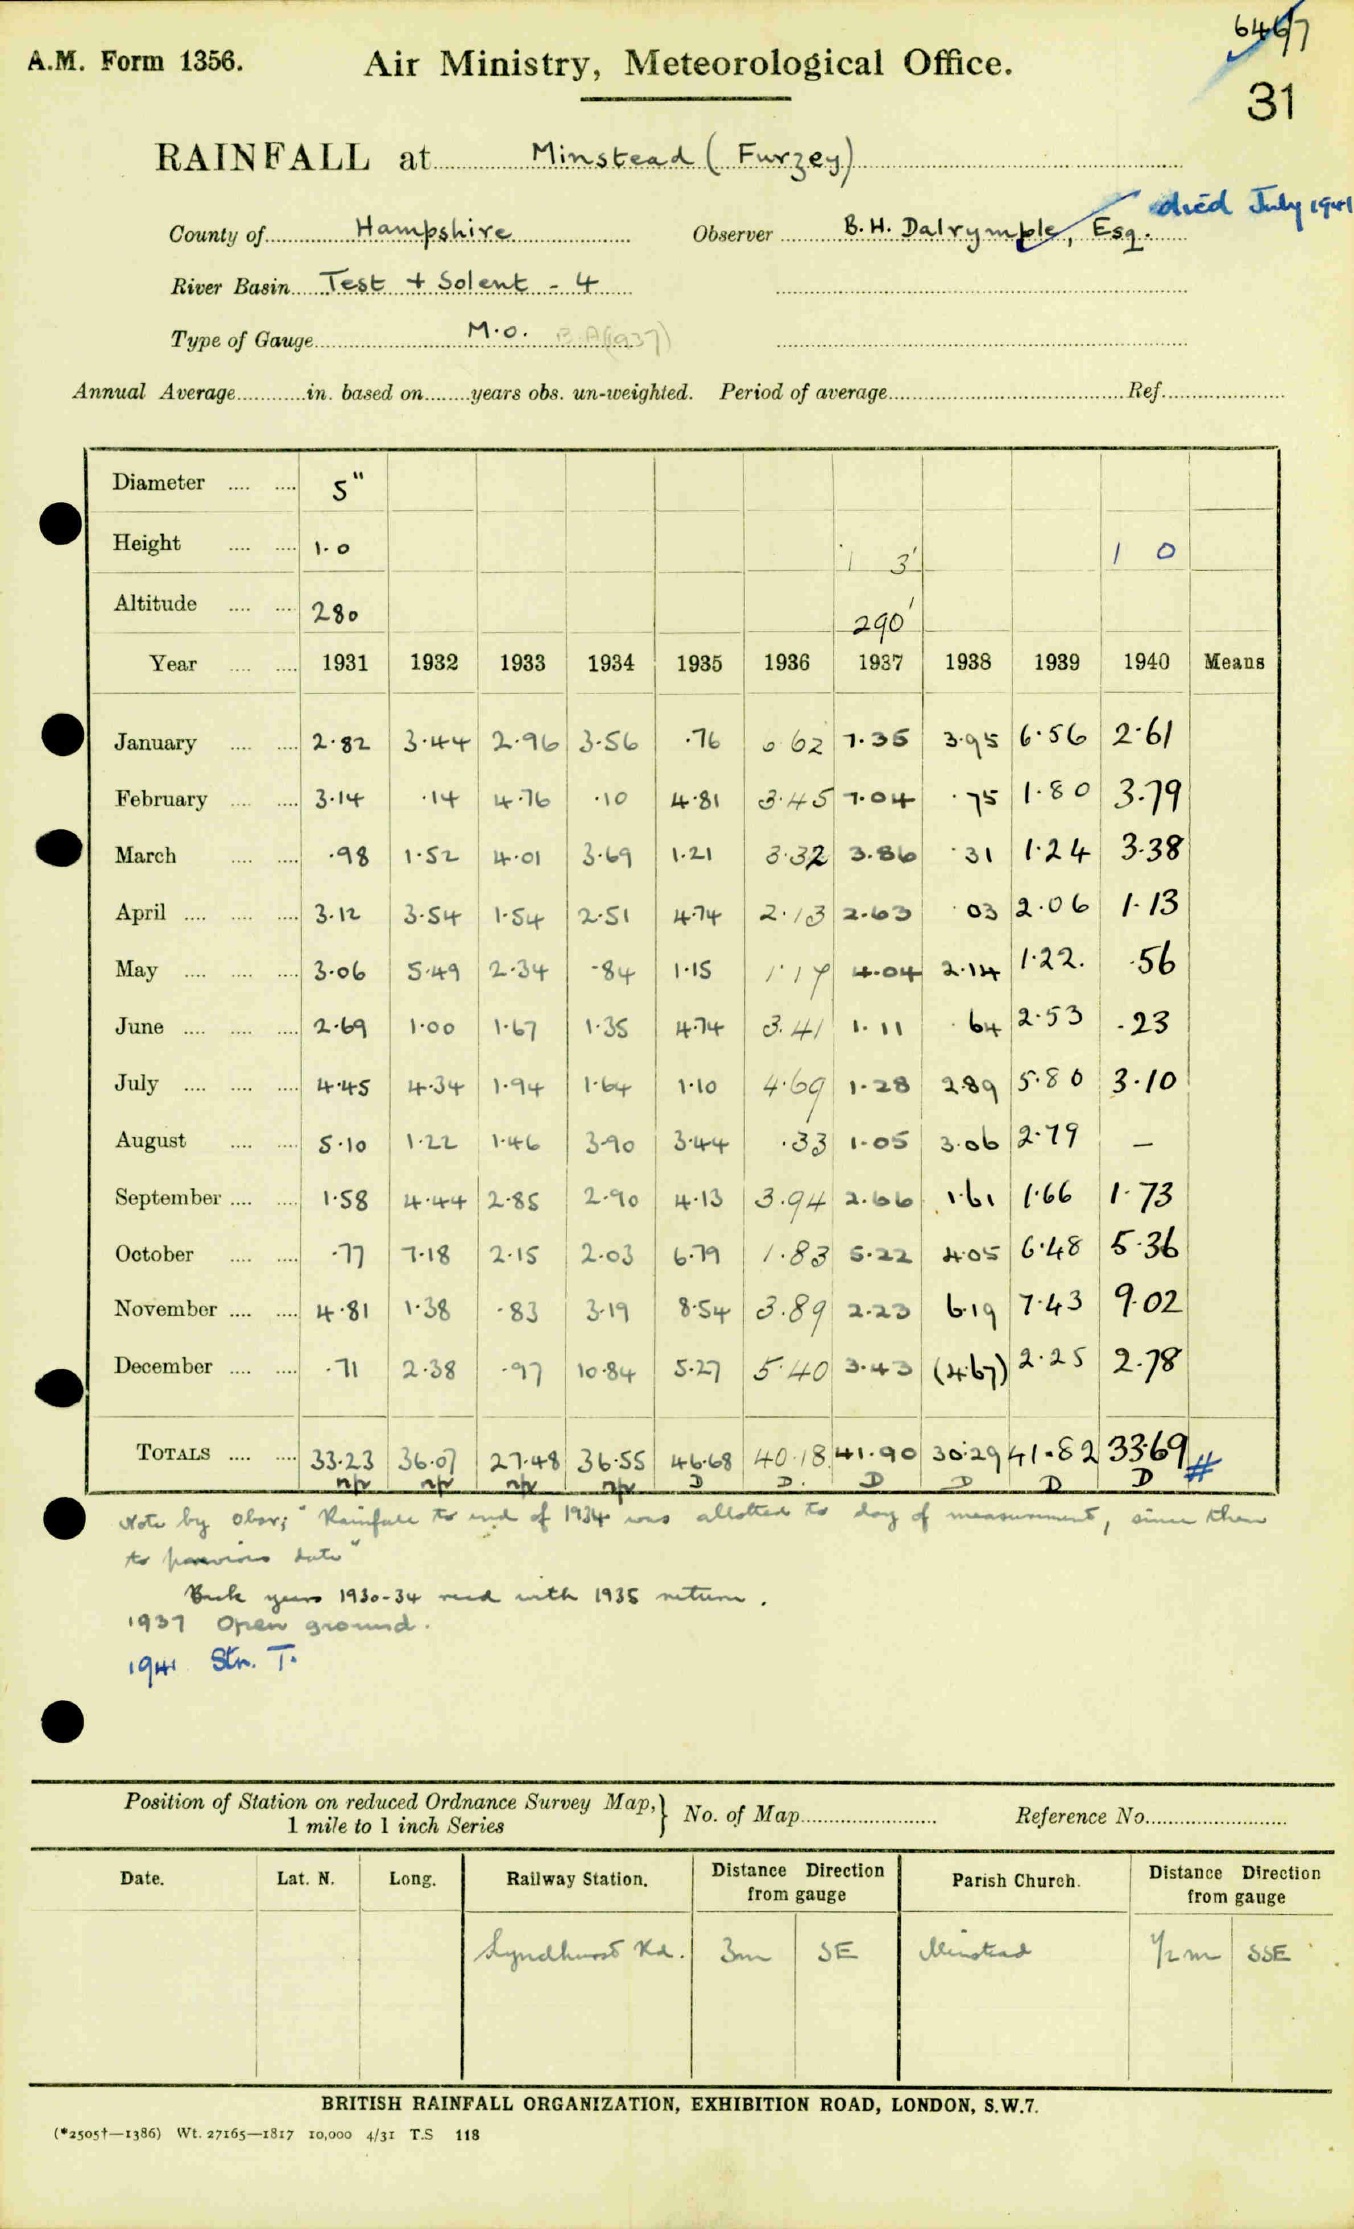 6467
A.M. Form 1356. Air Ministry, Meteorological Office.
31
RAINFALL at Minstead (Furzey)
died July 1941
County of Hampshire Observer B. H. Dalrymple, Esq.
River Basin Test + Solent - 4
Type of Gauge M.O. B.A(1937)
Annual Average in. based on years obs. un-weighted. Period of average Ref.
Diameter 5"
Height 1.0 1 3' 1 0
Altitude 280 290'
Year 1931 1932 1933 1934 1935 1936 1937 1938 1939 1940 Means
January 2.82 3.44 2.96 3.56 .76 6 62 7.35 3.95 6.56 2.61
February 3.14 .14 4.76 .10 4.81 3.45 7.04 .75 1.80 3.79
March .98 1.52 4.01 3.69 1.21 3.32 3.86 .31 1.24 3.38
April 3.12 3.54 1.54 2.51 4.74 2.13 2.63 .03 2.06 1.13
May 3.06 5.49 2.34 .84 1.15 1.17 4.04 2.14 1.22. .56
June 2.69 1.00 1.67 1.35 4.74 3.41 1.11 .64 2.53 .23
July 4.45 4.34 1.94 1.64 1.10 4.69 1.28 2.89 5.80 3.10
August 5.10 1.22 1.46 3.90 3.44 .33 1.05 3.06 2.79 —
September 1.58 4.44 2.85 2.90 4.13 3.94 2.66 1.61 1.66 1.73
October .77 7.18 2.15 2.03 6.79 1.83 5.22 4.05 6.48 5.36
November 4.81 1.38 .83 3.19 8.54 3.89 2.23 6.19 7.43 9.02
December .71 2.38 .97 10.84 5.27 5.40 3.43 (4.67) 2.25 2.78
TOTALS 33.23 36.07 27.48 36.55 46.68 40.18 41.90 30.29 41.82 33.69 #
np np np np D D. D D D D
Note by obsr; "Rainfall to end of 1934 was allotted to day of measurement, since then
to previous date"
Back years 1930-34 recd with 1935 return.
1937 Open ground.
1941 Stn. T.
Position of Station on reduced Ordnance Survey Map,} No. of Map Reference No.
1 mile to 1 inch Series
Date. Lat. N. Long. Railway Station. Distance Direction from gauge Parish Church. Distance Direction from gauge
Lyndhurst Rd. 3m SE Minstead ½ m SSE
BRITISH RAINFALL ORGANIZATION, EXHIBITION ROAD, LONDON, S.W.7.
(*2505†—1386) Wt. 27165—1817 10,000 4/31 T.S 118